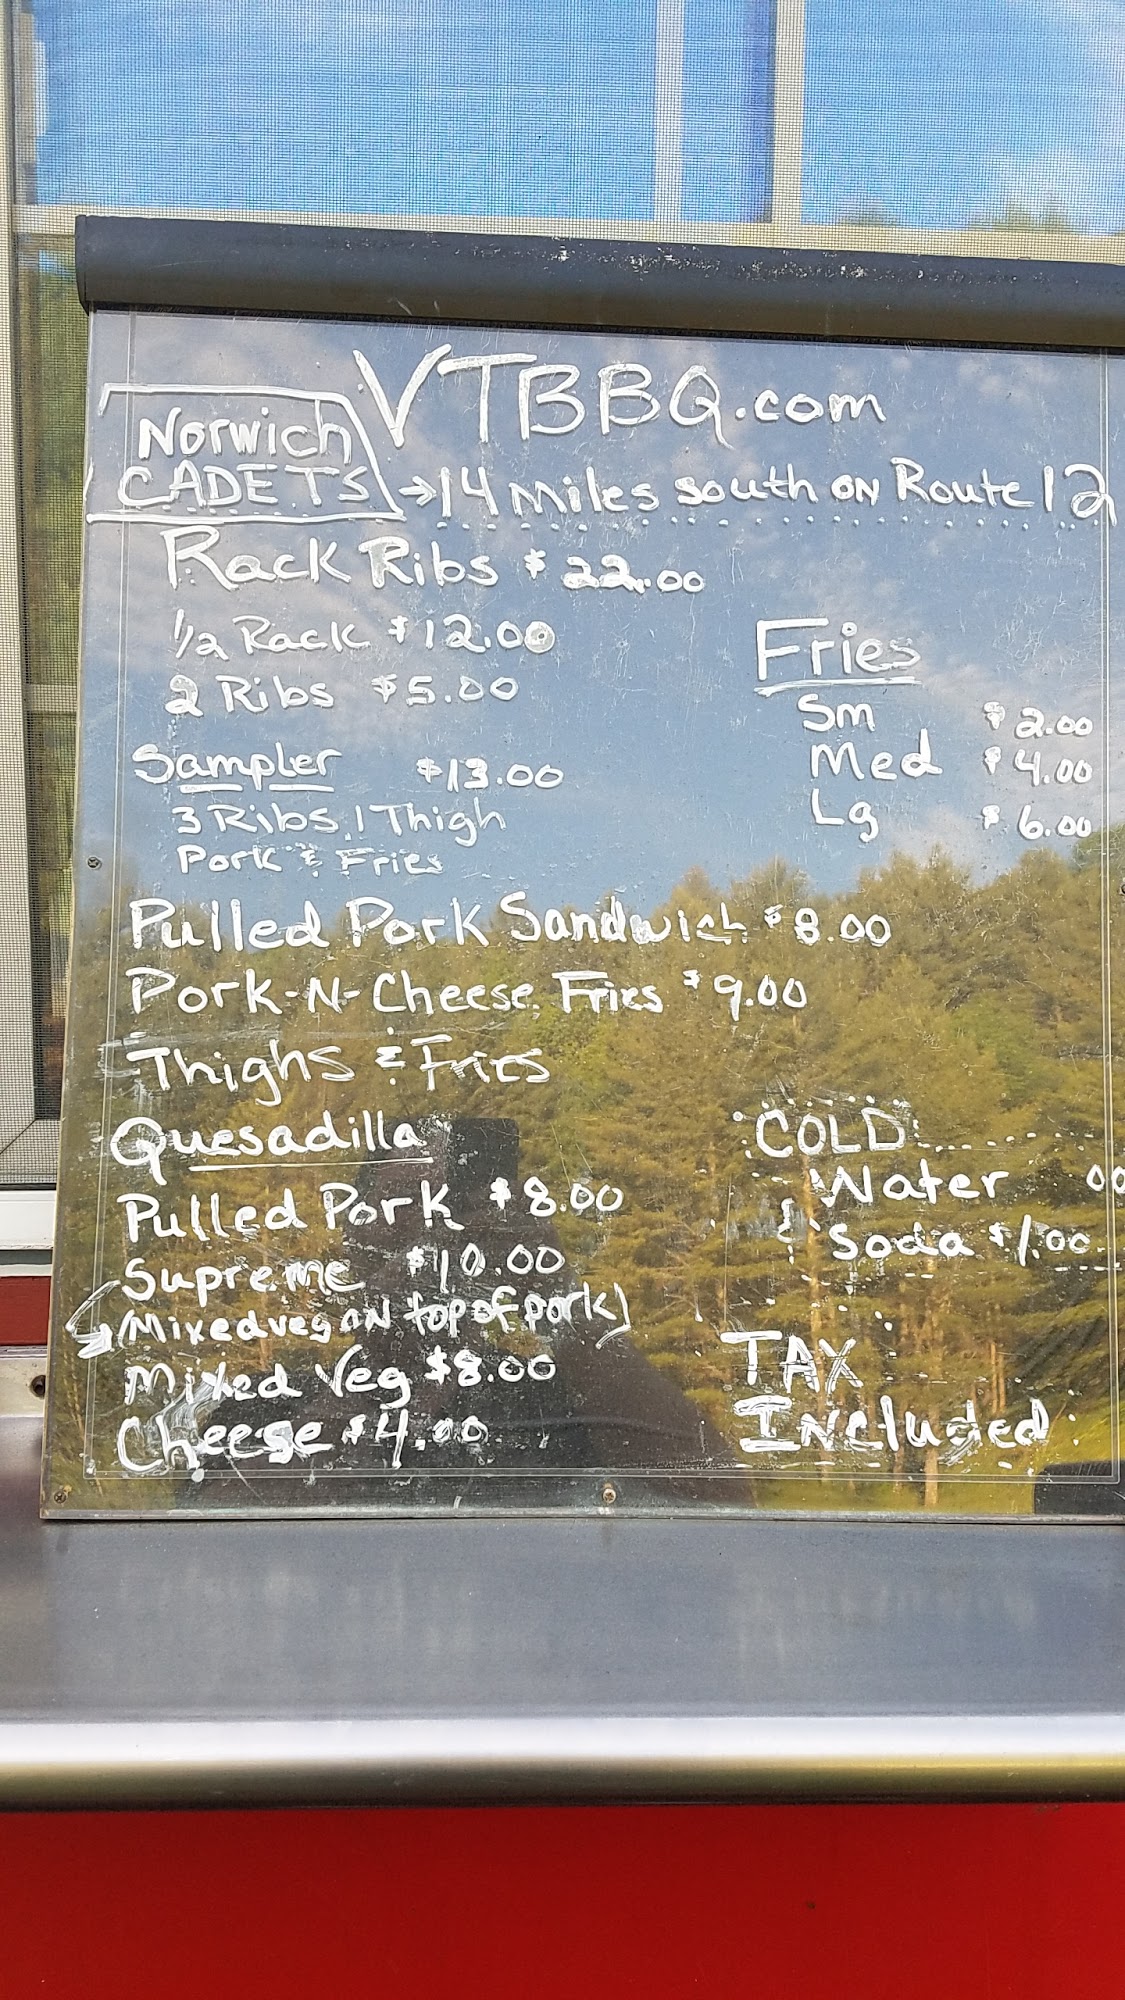 VTBBQ.com
Norwich
CADETS → 14 miles south on Route 12
Rack Ribs $22.00
1/2 Rack $12.00
2 Ribs $5.00
Fries
Sm $2.00
Med $4.00
Lg $6.00
Sampler $13.00
3 Ribs, 1 Thigh
Pork & Fries
Pulled Pork Sandwich $8.00
Pork-N-Cheese Fries $9.00
Thighs & Fries
Quesadilla
Pulled Pork $8.00
Supreme $10.00
(Mixed veg on top of pork)
Mixed Veg $8.00
Cheese $4.00
COLD
Water
& Soda $1.00
TAX
Included